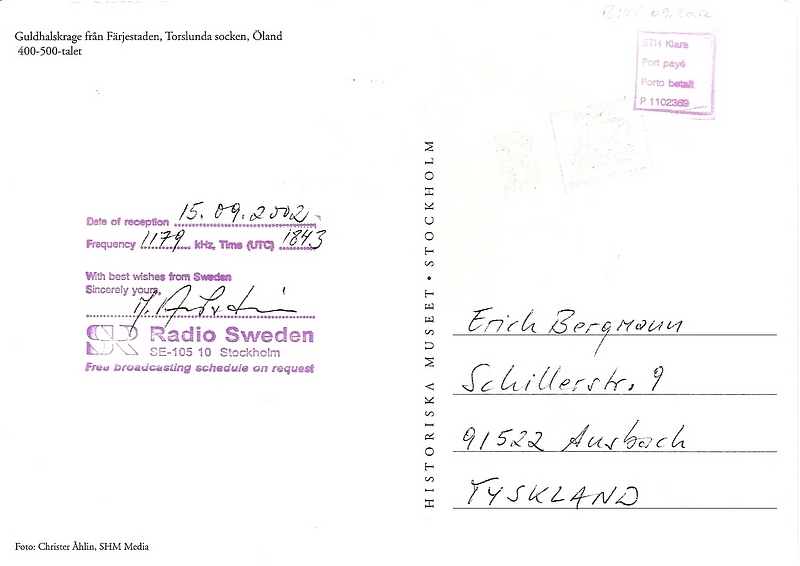 Guldhalskrage från Färjestaden, Torslunda socken, Öland
400-500-talet
STH Klara
Port payé
Porto betalt
P 1102369
Date of reception 15.09.2002
Frequency 1179 kHz, Time (UTC) 1843
With best wishes from Sweden
Sincerely yours,
SR Radio Sweden
SE-105 10 Stockholm
Free broadcasting schedule on request
HISTORISKA MUSEET • STOCKHOLM
Erich Bergmann
Schillerstr. 9
91522 Ansbach
TYSKLAND
Foto: Christer Åhlin, SHM Media